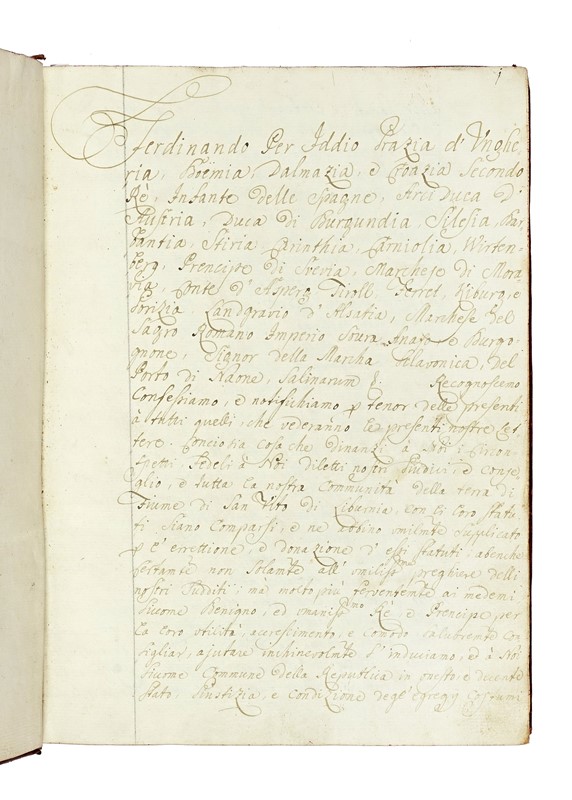 1
Ferdinando Per Iddio Grazia d' Unghe
ria, Boëmia, Dalmazia, e Croazia Secondo
Rè, Infante delle Spagne, Arci Duca d'
Austria, Duca di Burgundia, Silesia, Bar
bantia, Stiria, Carinthia, Carniolia, Wirten-
berg, Prencipe di Svevia, Marchese di Mora
via, Conte d' Asperg, Tiroll, Ferret, Kiburg, e
Gorizia. Landgravio d' Alsatia, Marchese del
Sagro Romano Imperio Sovra Anaso e Burgo-
gnone, Signor della Marcha Sclavonica, del
Porto di Naone, Salinarum &. Recognoscemo
Confessiamo, e notifichiamo p tenor delle presenti
à tutti quelli, che vederanno le presenti nostre Let
tere. Conciosia cosa che dinanzi à Noi i Circon-
spetti, Fedeli à Noi diletti nostri Giudici, e Conse
glio, e tutta la nostra Communità della terra di
Fiume di San Vito di Liburnia, con li loro Statu
ti siano Comparsi, e ne abbino supplicato
p l' errettione, e donazione d' essi statuti, abenche
non solamte all' preghiere delli
nostri Sudditi; ma molto più ferventemte ai medemi
sicome Benigno, ed Rè, e Prencipe per
la loro utilità, acrescimento, e comodo salubremte Con
sigliar, ajutare s' induciamo, ed à Noi
sicome Commune della Republica in questo, e
stato, Giustizia, e Condizione degl' egregy Costumi